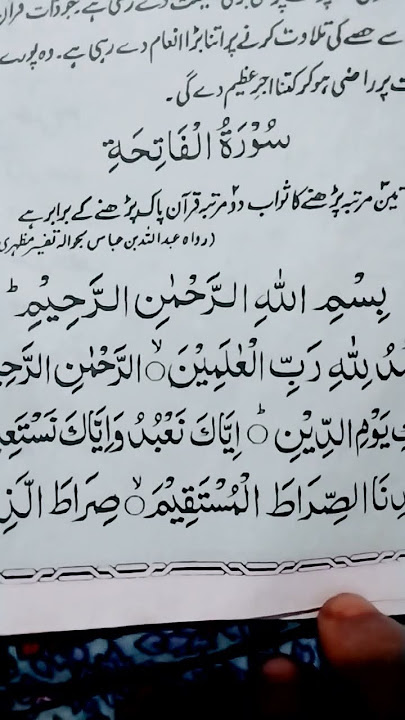 سے حصے کی تلاوت کرنے پر اتنا بڑا انعام دے رہی ہے۔ وہ پورے
پر راضی ہو کر کتنا اجرِ عظیم دے گی۔
سُوْرَةُ الْفَاتِحَةِ
تین مرتبہ پڑھنے کا ثواب دو مرتبہ قرآن پاک پڑھنے کے برابر ہے
(رواہ عبداللہ بن عباس بحوالہ تفسیر مظہری
بِسْمِ اللهِ الرَّحْمٰنِ الرَّحِيْمِ ؕ
لِلّٰهِ رَبِّ الْعٰلَمِيْنَ ۙ الرَّحْمٰنِ
يَوْمِ الدِّيْنِ ؕ اِيَّاكَ نَعْبُدُ وَاِيَّاكَ
الصِّرَاطَ الْمُسْتَقِيْمَ ۙ صِرَاطَ